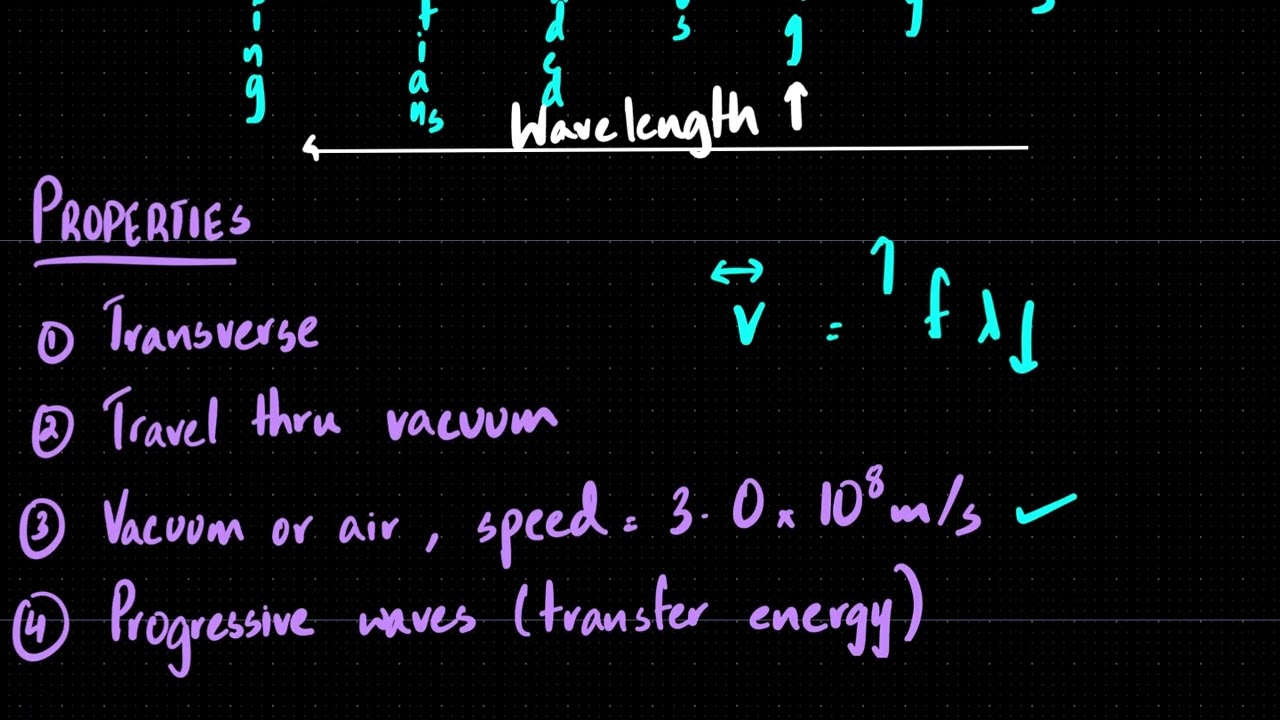 Wavelength ↑
PROPERTIES
① Transverse
v = ↑ f λ ↓
② Travel thru vacuum
③ Vacuum or air, speed = 3.0 x 10⁸ m/s ✓
④ Progressive waves (transfer energy)